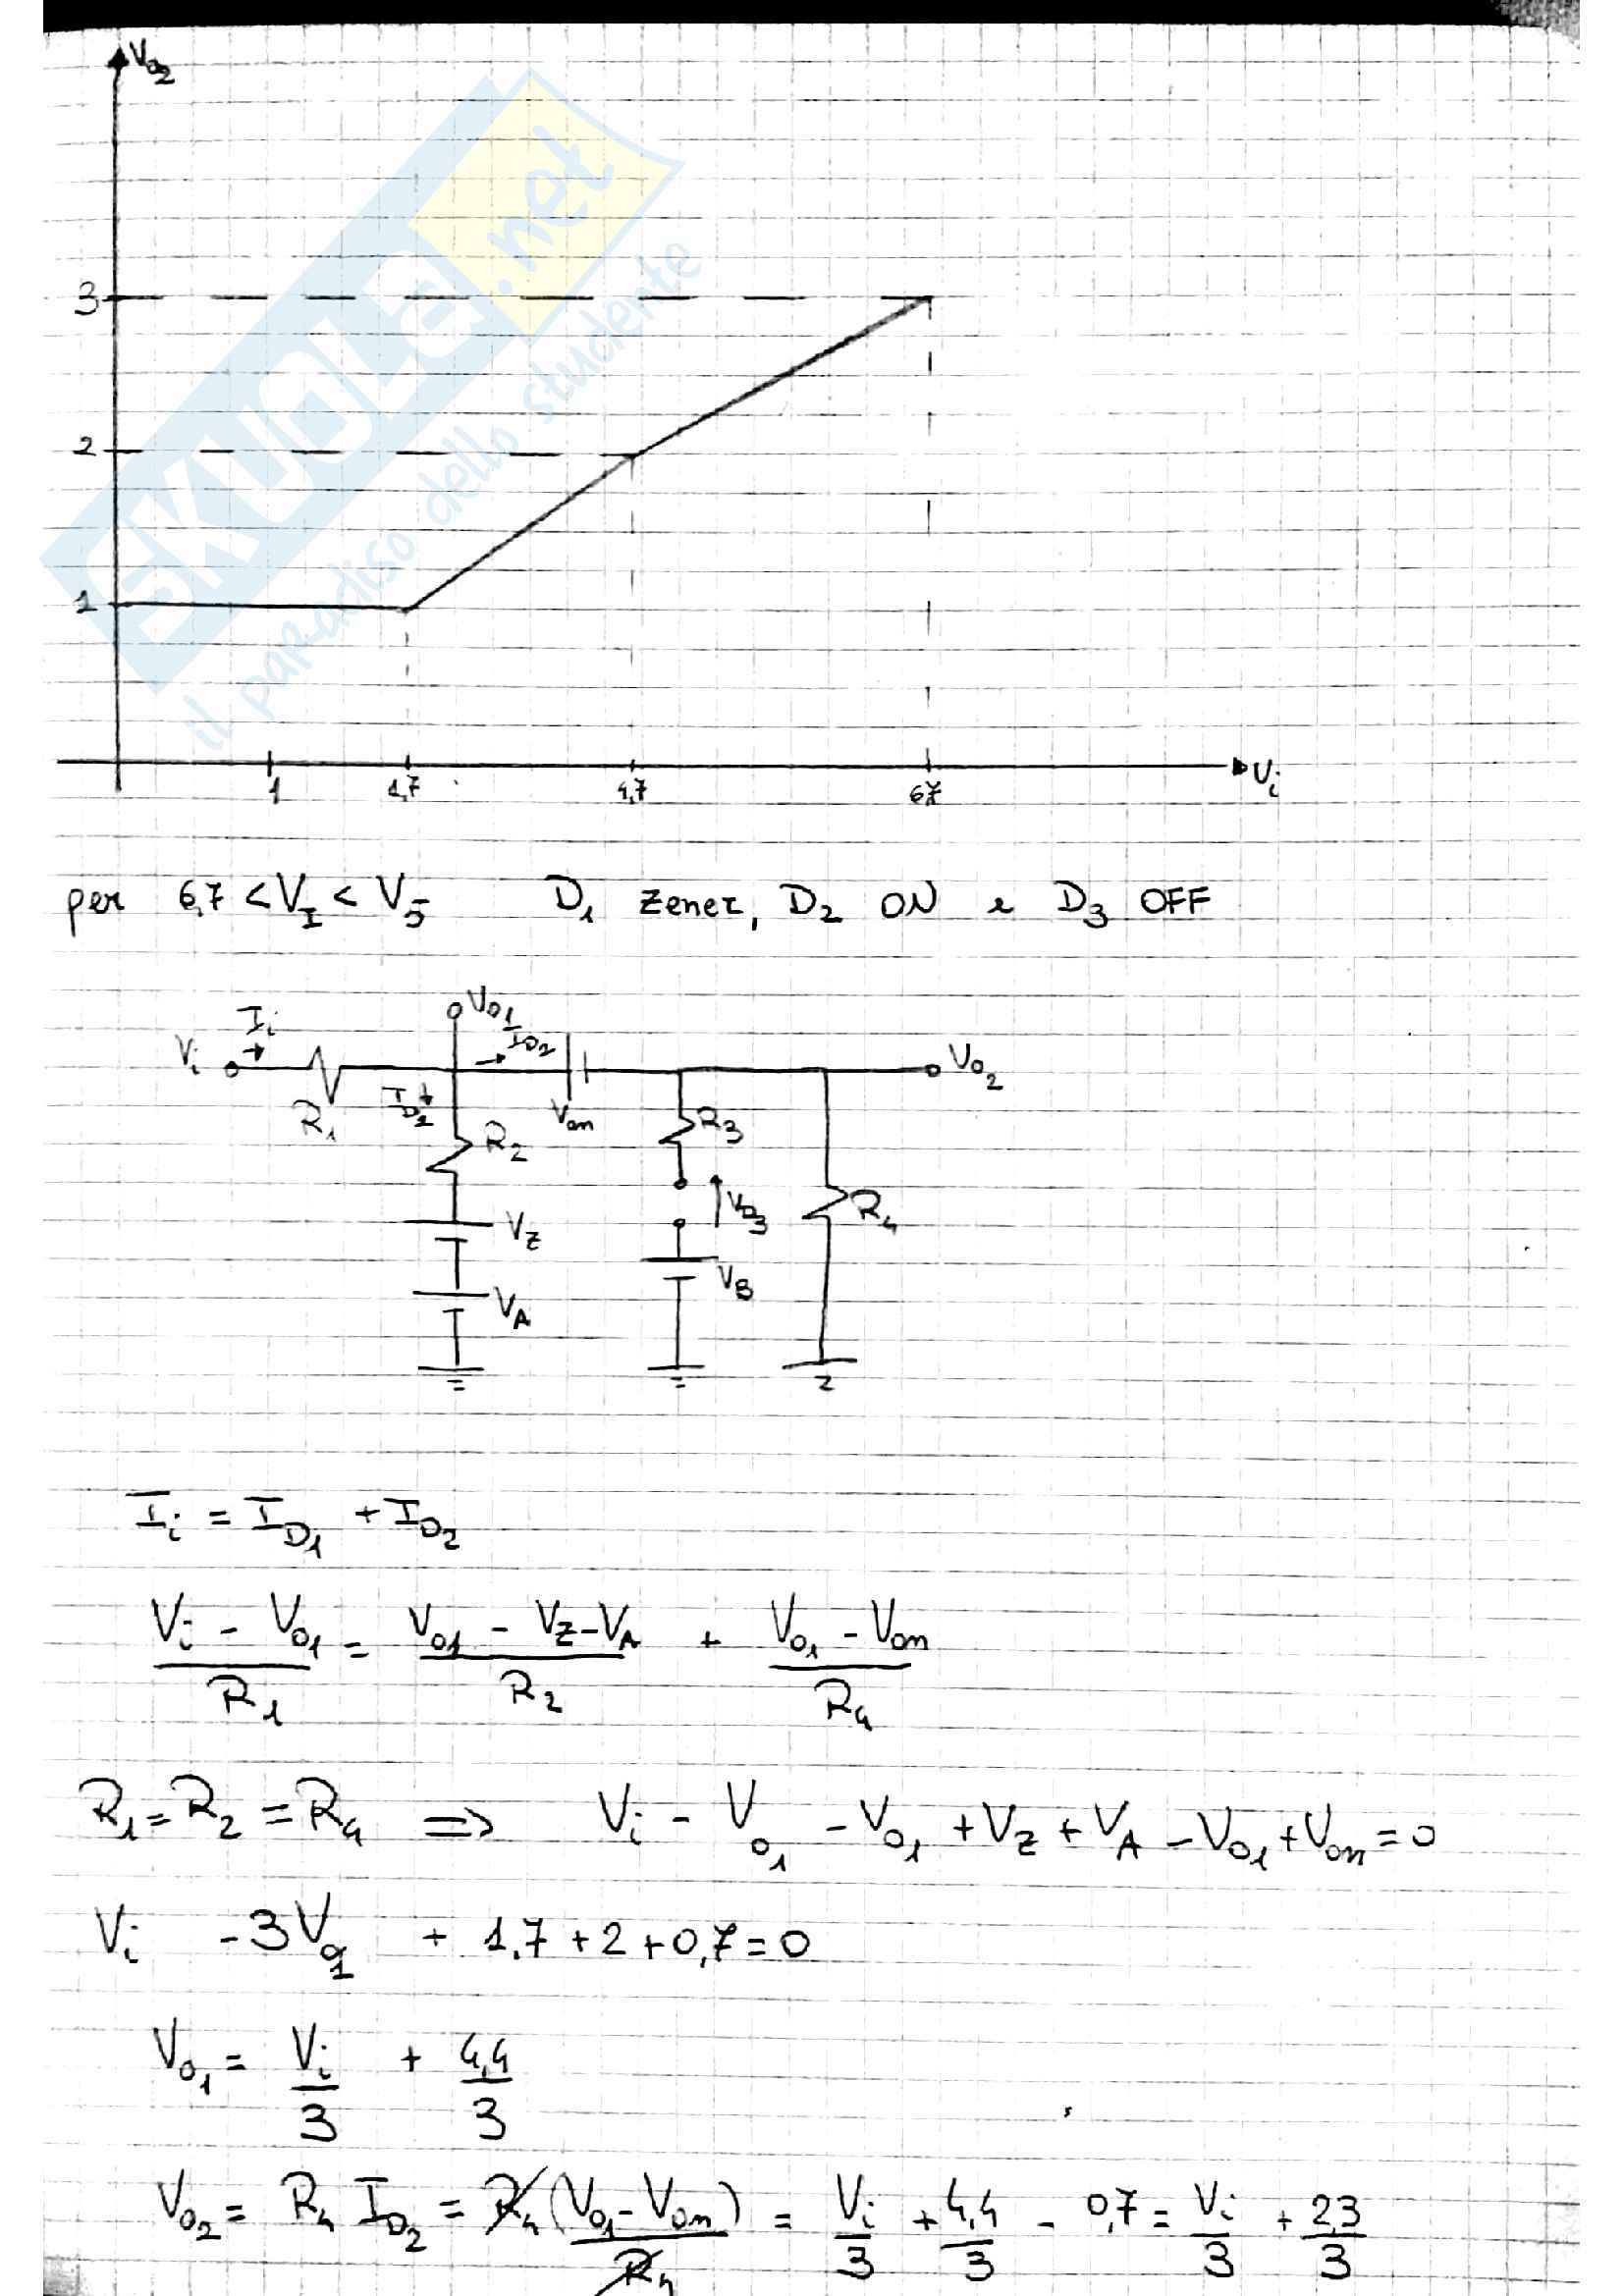 V₀₂
3
2
1
1 1,7 4,7 6,7 Vi
SKUOLA.net
il paradiso dello studente
per 6,7 < V_I < V₅ D₁ zener, D₂ ON e D₃ OFF
Vi Ii R₁ V₀₁ I_D2 Von V₀₂
R₂ R₃ V_D3 R₄
V_Z V_B
V_A
Ii = I_D1 + I_D2
(Vi - V₀₁)/R₁ = (V₀₁ - V_Z - V_A)/R₂ + (V₀₁ - Von)/R₄
R₁ = R₂ = R₄ => Vi - V₀₁ - V₀₁ + V_Z + V_A - V₀₁ + Von = 0
Vi - 3V₀₁ + 1,7 + 2 + 0,7 = 0
V₀₁ = Vi/3 + 4,4/3
V₀₂ = R₄ I_D2 = R₄ (V₀₁ - Von)/R₄ = Vi/3 + 4,4/3 - 0,7 = Vi/3 + 2,3/3